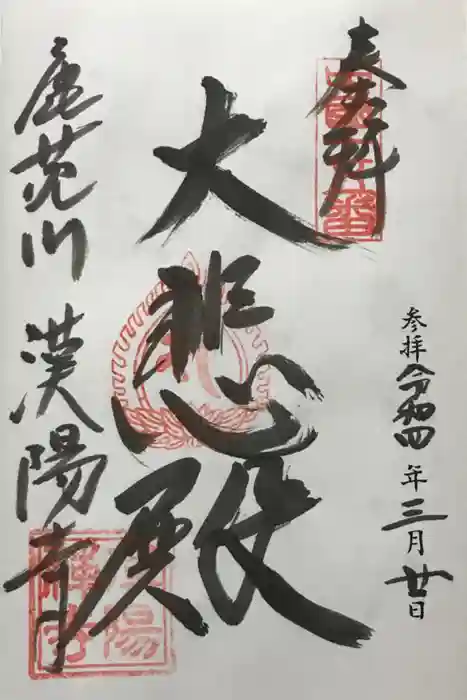 奉拜
参拝令和四年三月廿日
大悲殿
鹿苑川 漢陽寺